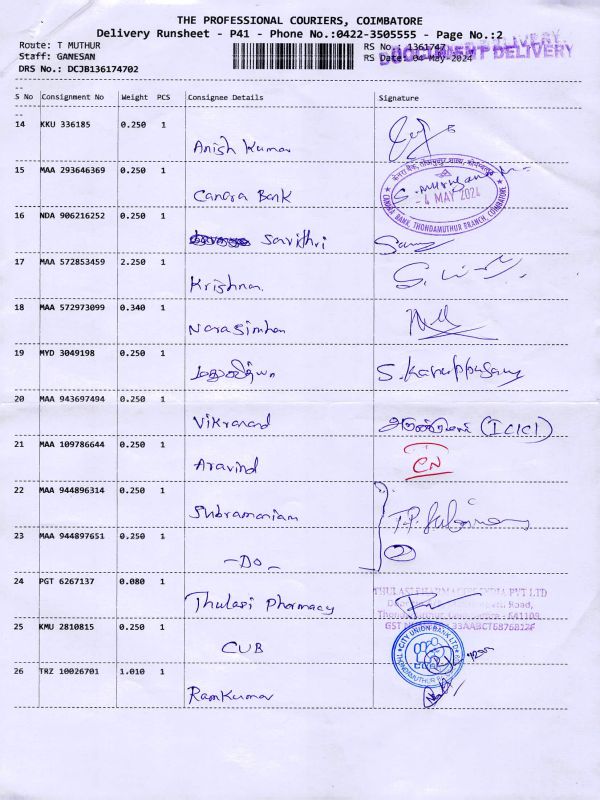 THE PROFESSIONAL COURIERS, COIMBATORE
Delivery Runsheet - P41 - Phone No.:0422-3505555 - Page No.:2
Route: T MUTHUR
RS No.: 1361747
Staff: GANESAN
RS Date: 04-May-2024
DOCUMENT DELIVERY
DRS No.: DCJB136174702
--
S No Consignment No Weight PCS Consignee Details Signature
--
14 KKU 336185 0.250 1
Anish Kumar
15 MAA 293646369 0.250 1
Canara Bank
S. Murugan
- 4 MAY 2024
CANARA BANK, THONDAMUTHUR BRANCH, COIMBATORE
16 NDA 906216252 0.250 1
Savithri
17 MAA 572853459 2.250 1
Krishnan.
18 MAA 572973099 0.340 1
Narasimhan
19 MYD 3049198 0.250 1
S. Karuppusamy
20 MAA 943697494 0.250 1
Vikranand (ICICI)
21 MAA 109786644 0.250 1
Aravind CN
22 MAA 944896314 0.250 1
Subramaniam
23 MAA 944897651 0.250 1
-Do- 2
24 PGT 6267137 0.080 1
Thulasi Pharmacy
THULASI PHARMACIES INDIA PVT LTD
Road,
641109
GST 33AABCT6876B1ZF
25 KMU 2810815 0.250 1
CUB
CITY UNION BANK LTD
CUB
THONDAMUTHUR
26 TRZ 10026701 1.010 1
RamKumar